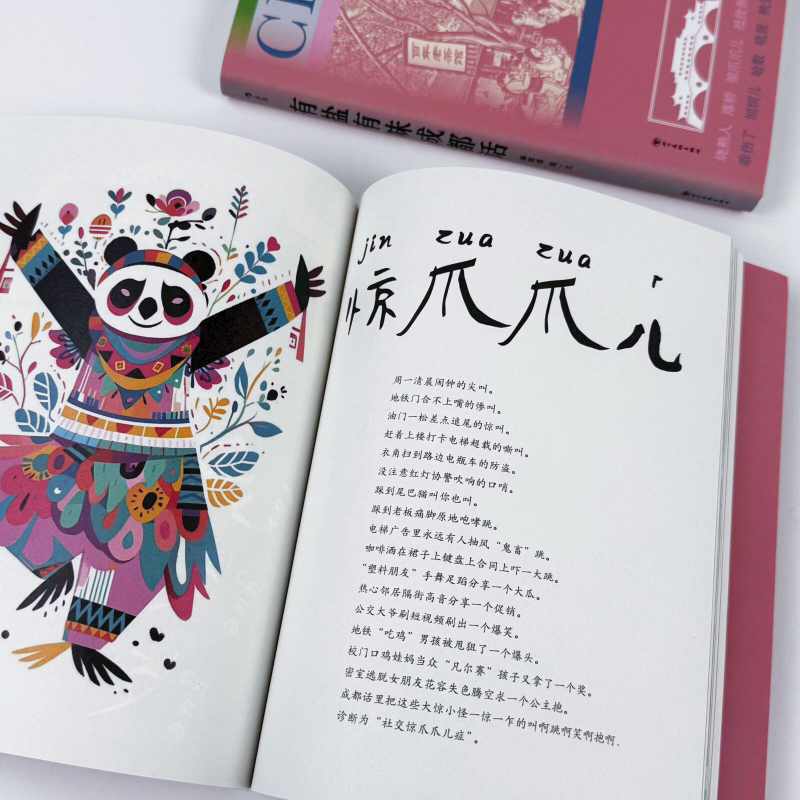 百年老茶馆
有盐有味成都话
烧熟人 落轿 惊爪爪儿
jin zua zua r
惊爪爪儿
周一清晨闹钟的尖叫。
地铁门合不上嘴的惨叫。
油门一松差点追尾的惊叫。
赶着上楼打卡电梯超载的嘶叫。
衣角扫到路边电瓶车的防盗。
没注意红灯协警吹响的口哨。
踩到尾巴猫叫你也叫。
踩到老板痛脚原地咆哮跳。
电梯广告里永远有人抽风“鬼畜”跳。
咖啡洒在裙子上键盘上合同上吓一大跳。
“塑料朋友”手舞足蹈分享一个大瓜。
热心邻居隔街高音分享一个促销。
公交大爷刷短视频刷出一个爆笑。
地铁“吃鸡”男孩被甩狙了一个爆头。
校门口鸡娃妈当众“凡尔赛”孩子又拿了一个奖。
密室逃脱女朋友花容失色腾空求一个公主抱。
成都话里把这些大惊小怪一惊一乍的叫啊跳啊笑啊抱啊，
诊断为“社交惊爪爪儿症”。